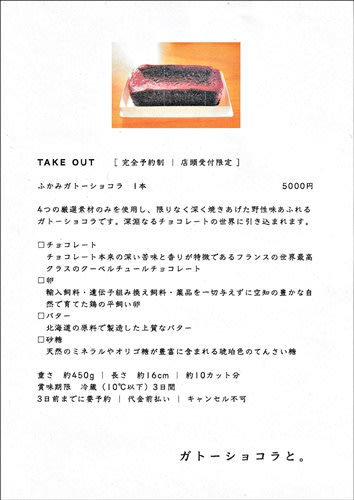 TAKE OUT [ 完全予約制 | 店頭受付限定 ]
ふかみガトーショコラ 1本 5000円
4つの厳選素材のみを使用し、限りなく深く焼きあげた野性味あふれる
ガトーショコラです。深淵なるチョコレートの世界に引き込まれます。
□チョコレート
チョコレート本来の深い苦味と香りが特徴であるフランスの世界最高
クラスのクーベルチュールチョコレート
□卵
輸入飼料・遺伝子組み換え飼料・薬品を一切与えずに空知の豊かな自
然で育てた鶏の平飼い卵
□バター
北海道の原料で製造した上質なバター
□砂糖
天然のミネラルやオリゴ糖が豊富に含まれる琥珀色のてんさい糖
重さ 約450g | 長さ 約16cm | 約10カット分
賞味期限 冷蔵（10℃以下）3日間
3日前までに要予約 | 代金前払い | キャンセル不可
ガトーショコラと。